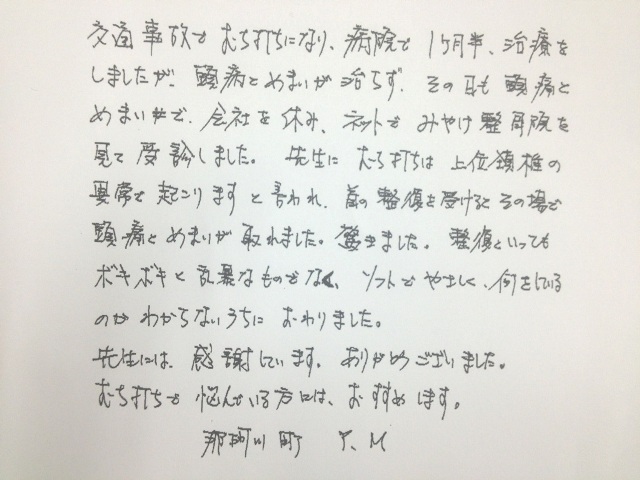 交通事故でむち打ちになり、病院で1ヶ月半、治療を
しましたが、頭痛とめまいが治らず、その日も頭痛と
めまいがで、会社を休み、ネットでみやけ整骨院を
見て受診しました。先生にむち打ちは上位頚椎の
異常で起こりますと言われ、首の整復を受けるとその場で
頭痛とめまいが取れました。驚きました。整復といっても
ボキボキと乱暴なものでなく、ソフトでやさしく、何をしている
のかわからないうちにおわりました。
先生には、感謝しています。ありがとうございました。
むち打ちで悩んでいる方には、おすすめします。
那珂川町 T.M